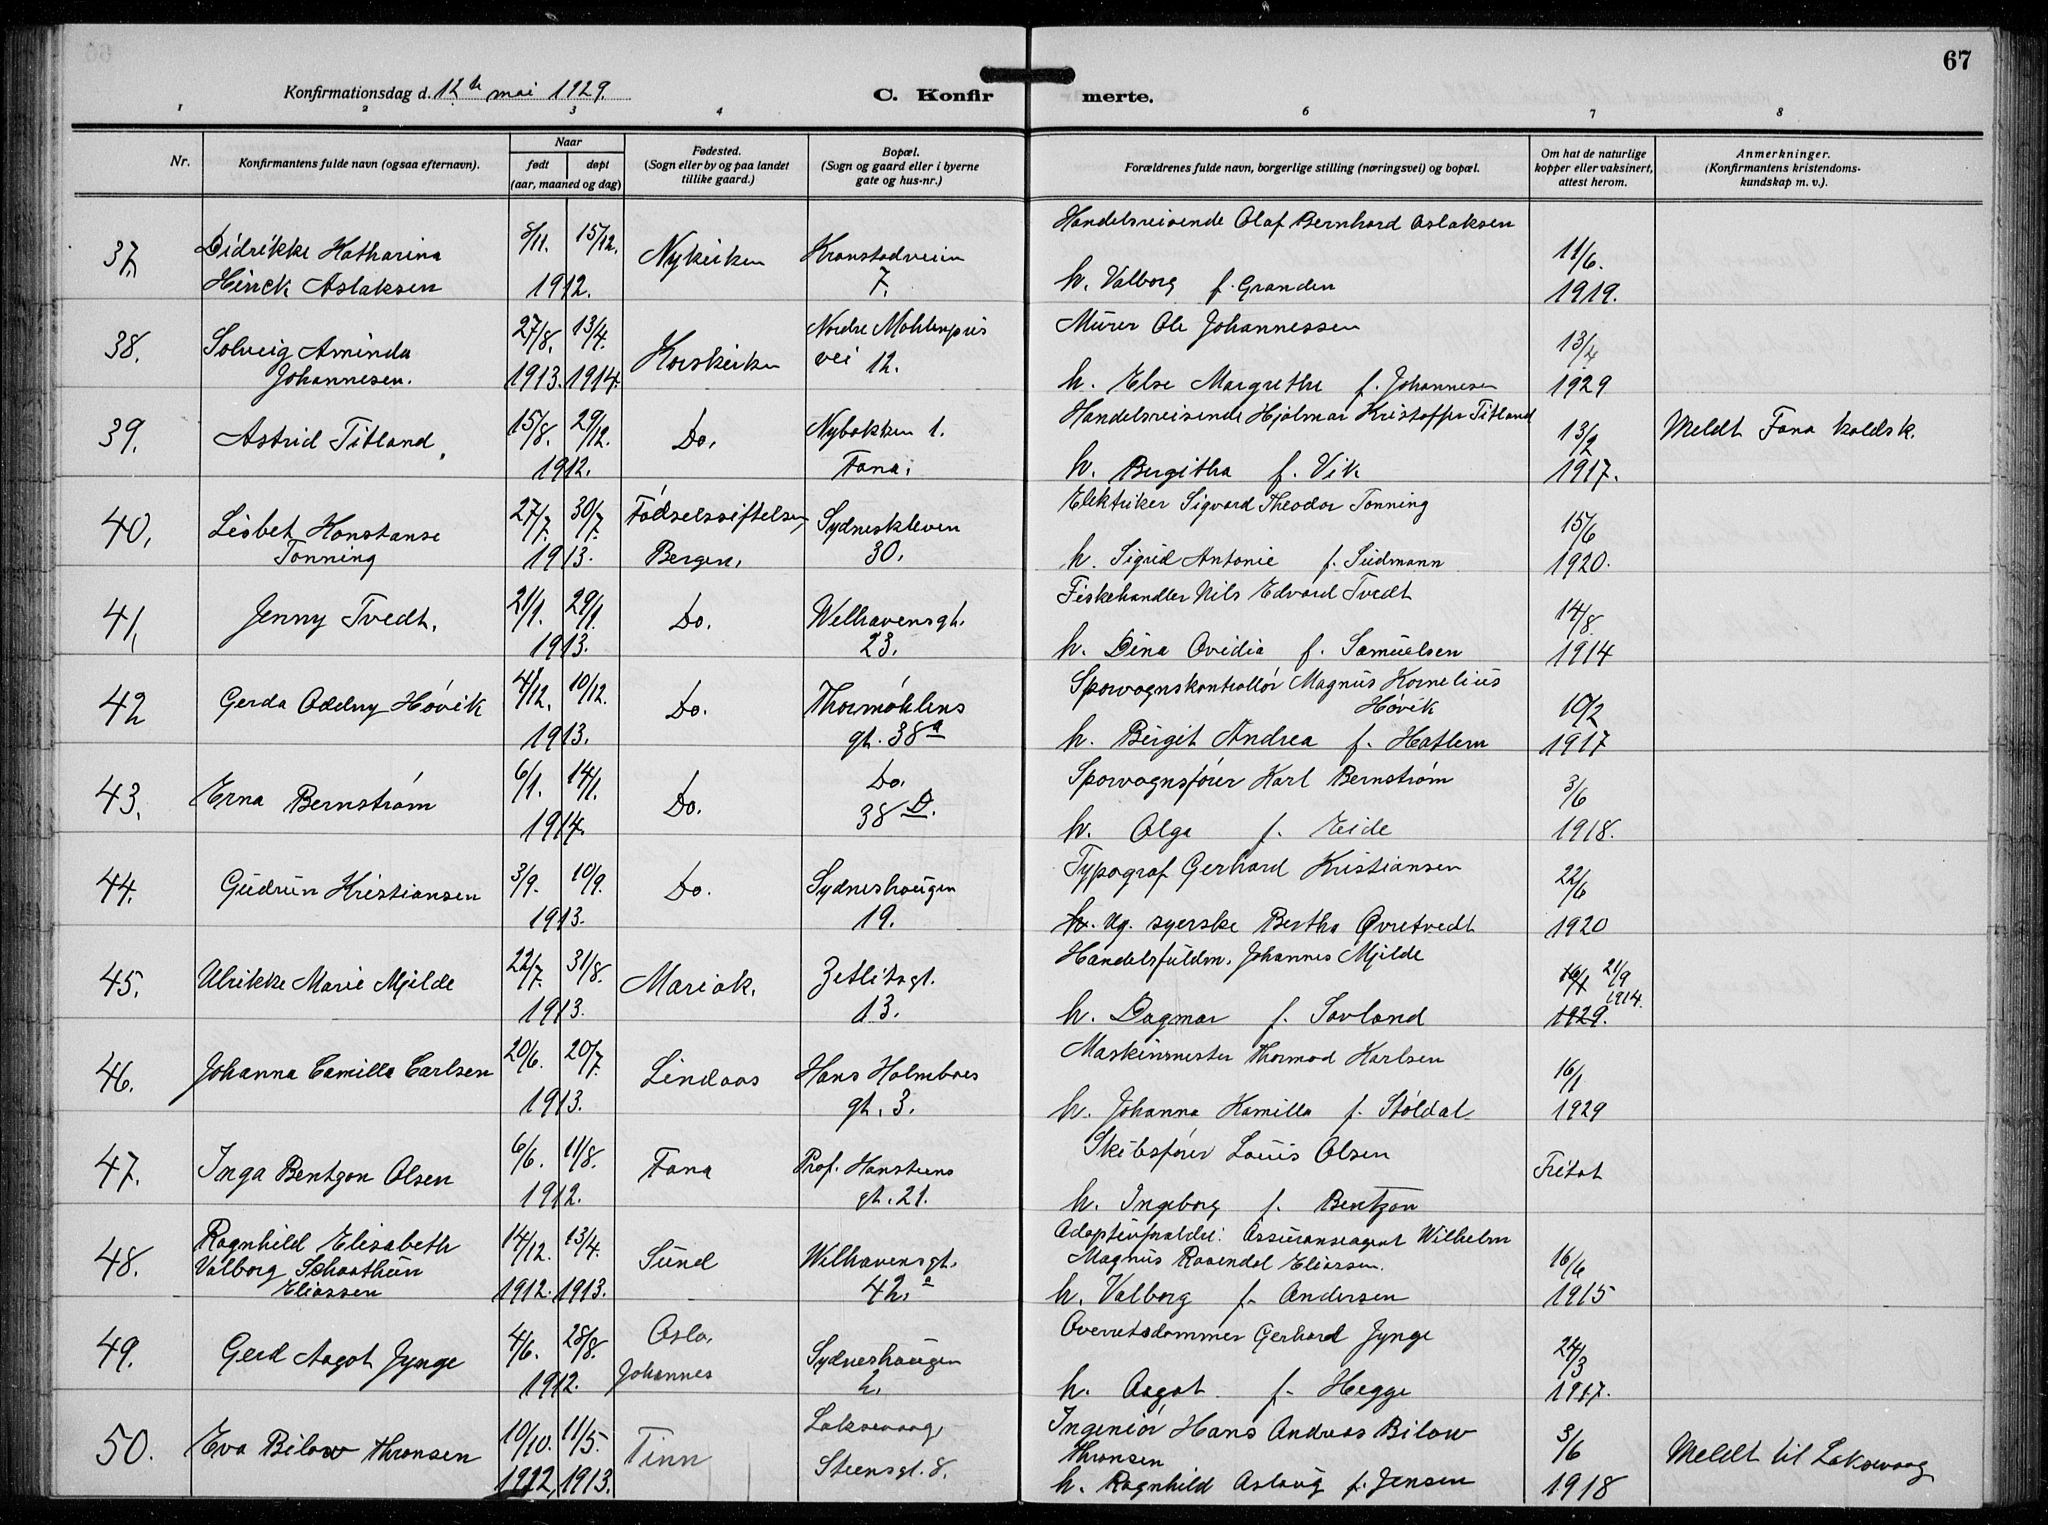 67
Konfirmationsdag d. 12te mai 1929.
C. Konfirmerte.
1 2 3 4 6 7 8
Nr.
Konfirmantens fulde navn (ogsaa efternavn).
Naar
født døpt
(aar, maaned og dag)
Fødested.
(Sogn eller by og paa landet
tillike gaard.)
Bopæl.
(Sogn og gaard eller i byerne
gate og hus-nr.)
Forældrenes fulde navn, borgerlige stilling (næringsvei) og bopæl.
Om hat de naturlige
kopper eller vaksinert,
attest herom.
Anmerkninger.
(Konfirmantens kristendoms-
kundskap m. v.).
37. Didrikke Katharina 8/11. 15/12. Nykirken Kronstadveien Handelsreisende Olaf Bernhard Aslaksen 11/6.
Hinck Aslaksen 1912. 7. h. Valborg f. Granden 1919.
38. Solveig Aminda 27/8. 13/4. Korskirken Nordre Møhlenpris Murer Ole Johannessen 13/4
Johannesen. 1913. 1914. vei 12. h. Else Margrethe f. Johannesen 1929
39. Astrid Titland. 15/8. 29/12. Do. Nybakken 1. Handelsreisende Hjalmar Kristoffer Titland 13/2 Meldt Fana kaldsk.
1912. Fana. h. Bergitha f. Vik 1917.
40. Lisbet Konstanse 27/7. 30/7. Fødselsstiftelsen Sydneskleven Elektriker Sigvard Theodor Tonning 15/6
Tonning 1913. Bergen. 30. h. Sigrid Antonie f. Südmann 1920.
41. Jenny Tvedt. 21/1. 29/1. Do. Welhavensgt. Fiskehandler Nils Edvard Tvedt 14/8.
1913. 23. h. Dina Ovidia f. Samuelsen 1914
42 Gerda Oddny Høvik 4/12. 10/12. Do. Thormøhlens Sporvognskontrollør Magnus Kornelius
Høvik 10/2
1913. gt. 38a h. Birgit Andrea f. Hatlem 1917
43. Erna Bernstrøm 6/1. 14/1. Do. Do. Sporvognsfører Karl Bernstrøm 3/6
1914. 38 D. h. Olga f. Eide 1918.
44. Gudrun Kristiansen 3/9. 10/9. Do. Sydneshaugen Typograf Gerhard Kristiansen 22/6
1913. 19. h. ug. syerske Bertha Øvretvedt 1920
45. Ulrikke Marie Mjelde 22/7. 31/8. Mariak. Zetlitzgt. Handelsfuldm. Johannes Mjelde 16/1 21/9
1913. 13. h. Dagmar f. Sovland 1929. 1914.
46. Johanna Camilla Carlsen 20/6. 20/7. Lindaas Hans Holmboes Maskinmester Thormod Karlsen 16/1
1913. gt. 3. h. Johanna Kamilla f. Støldal 1929
47. Inga Bentzon Olsen 6/6. 11/8. Fana Prof. Hansteens Skibsfører Louis Olsen Fritat
1912. gt. 21. h. Ingeborg f. Bentzon
48. Ragnhild Elisabeth 14/12. 13/4. Sund Welhavensgt. Adoptivforældre: Assuranseagent Wilhelm
Valborg Schaathun Magnus Rosendal Eliassen. 16/6
Eliassen 1912. 1913. 42.a h. Valborg f. Andersen 1915
49. Gerd Aagot Jynge 4/6. 28/8. Oslo, Sydneshaugen Overretsdommer Gerhard Jynge 24/3
1912. Johannes 2. h. Aagot f. Hegge 1917.
50. Eva Bilow Thronsen 10/10. 11/5. Tinn Laksevaag Ingeniør Hans Andreas Bilow
Thronsen 3/6 Meldt til Laksevaag
1912. 1913. Steensgt. 8. h. Ragnhild Aslaug f. Jensen 1918